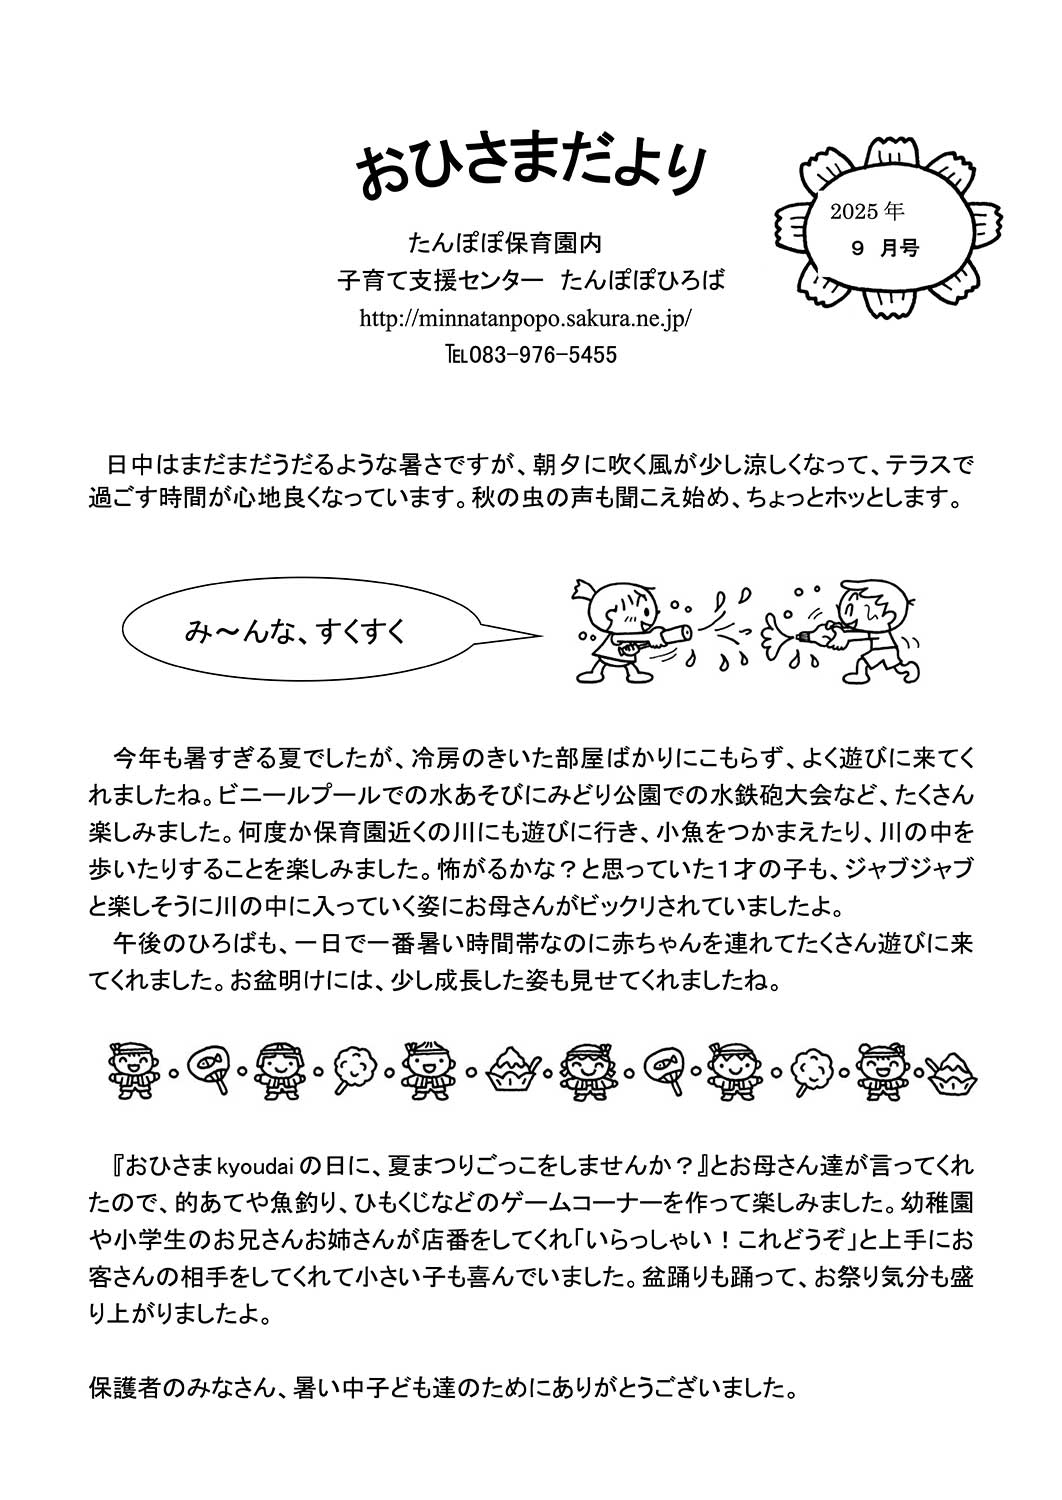 おひさまだより
2025年
9 月号
たんぽぽ保育園内
子育て支援センター たんぽぽひろば
http://minnatanpopo.sakura.ne.jp/
℡083-976-5455
日中はまだまだうだるような暑さですが、朝夕に吹く風が少し涼しくなって、テラスで
過ごす時間が心地良くなっています。秋の虫の声も聞こえ始め、ちょっとホッとします。
み~んな、すくすく
今年も暑すぎる夏でしたが、冷房のきいた部屋ばかりにこもらず、よく遊びに来てく
れましたね。ビニールプールでの水あそびにみどり公園での水鉄砲大会など、たくさん
楽しみました。何度か保育園近くの川にも遊びに行き、小魚をつかまえたり、川の中を
歩いたりすることを楽しみました。怖がるかな？と思っていた1才の子も、ジャブジャブ
と楽しそうに川の中に入っていく姿にお母さんがビックリされていましたよ。
午後のひろばも、一日で一番暑い時間帯なのに赤ちゃんを連れてたくさん遊びに来
てくれました。お盆明けには、少し成長した姿も見せてくれましたね。
『おひさまkyoudaiの日に、夏まつりごっこをしませんか？』とお母さん達が言ってくれ
たので、的あてや魚釣り、ひもくじなどのゲームコーナーを作って楽しみました。幼稚園
や小学生のお兄さんお姉さんが店番をしてくれ「いらっしゃい！これどうぞ」と上手にお
客さんの相手をしてくれて小さい子も喜んでいました。盆踊りも踊って、お祭り気分も盛
り上がりましたよ。
保護者のみなさん、暑い中子ども達のためにありがとうございました。